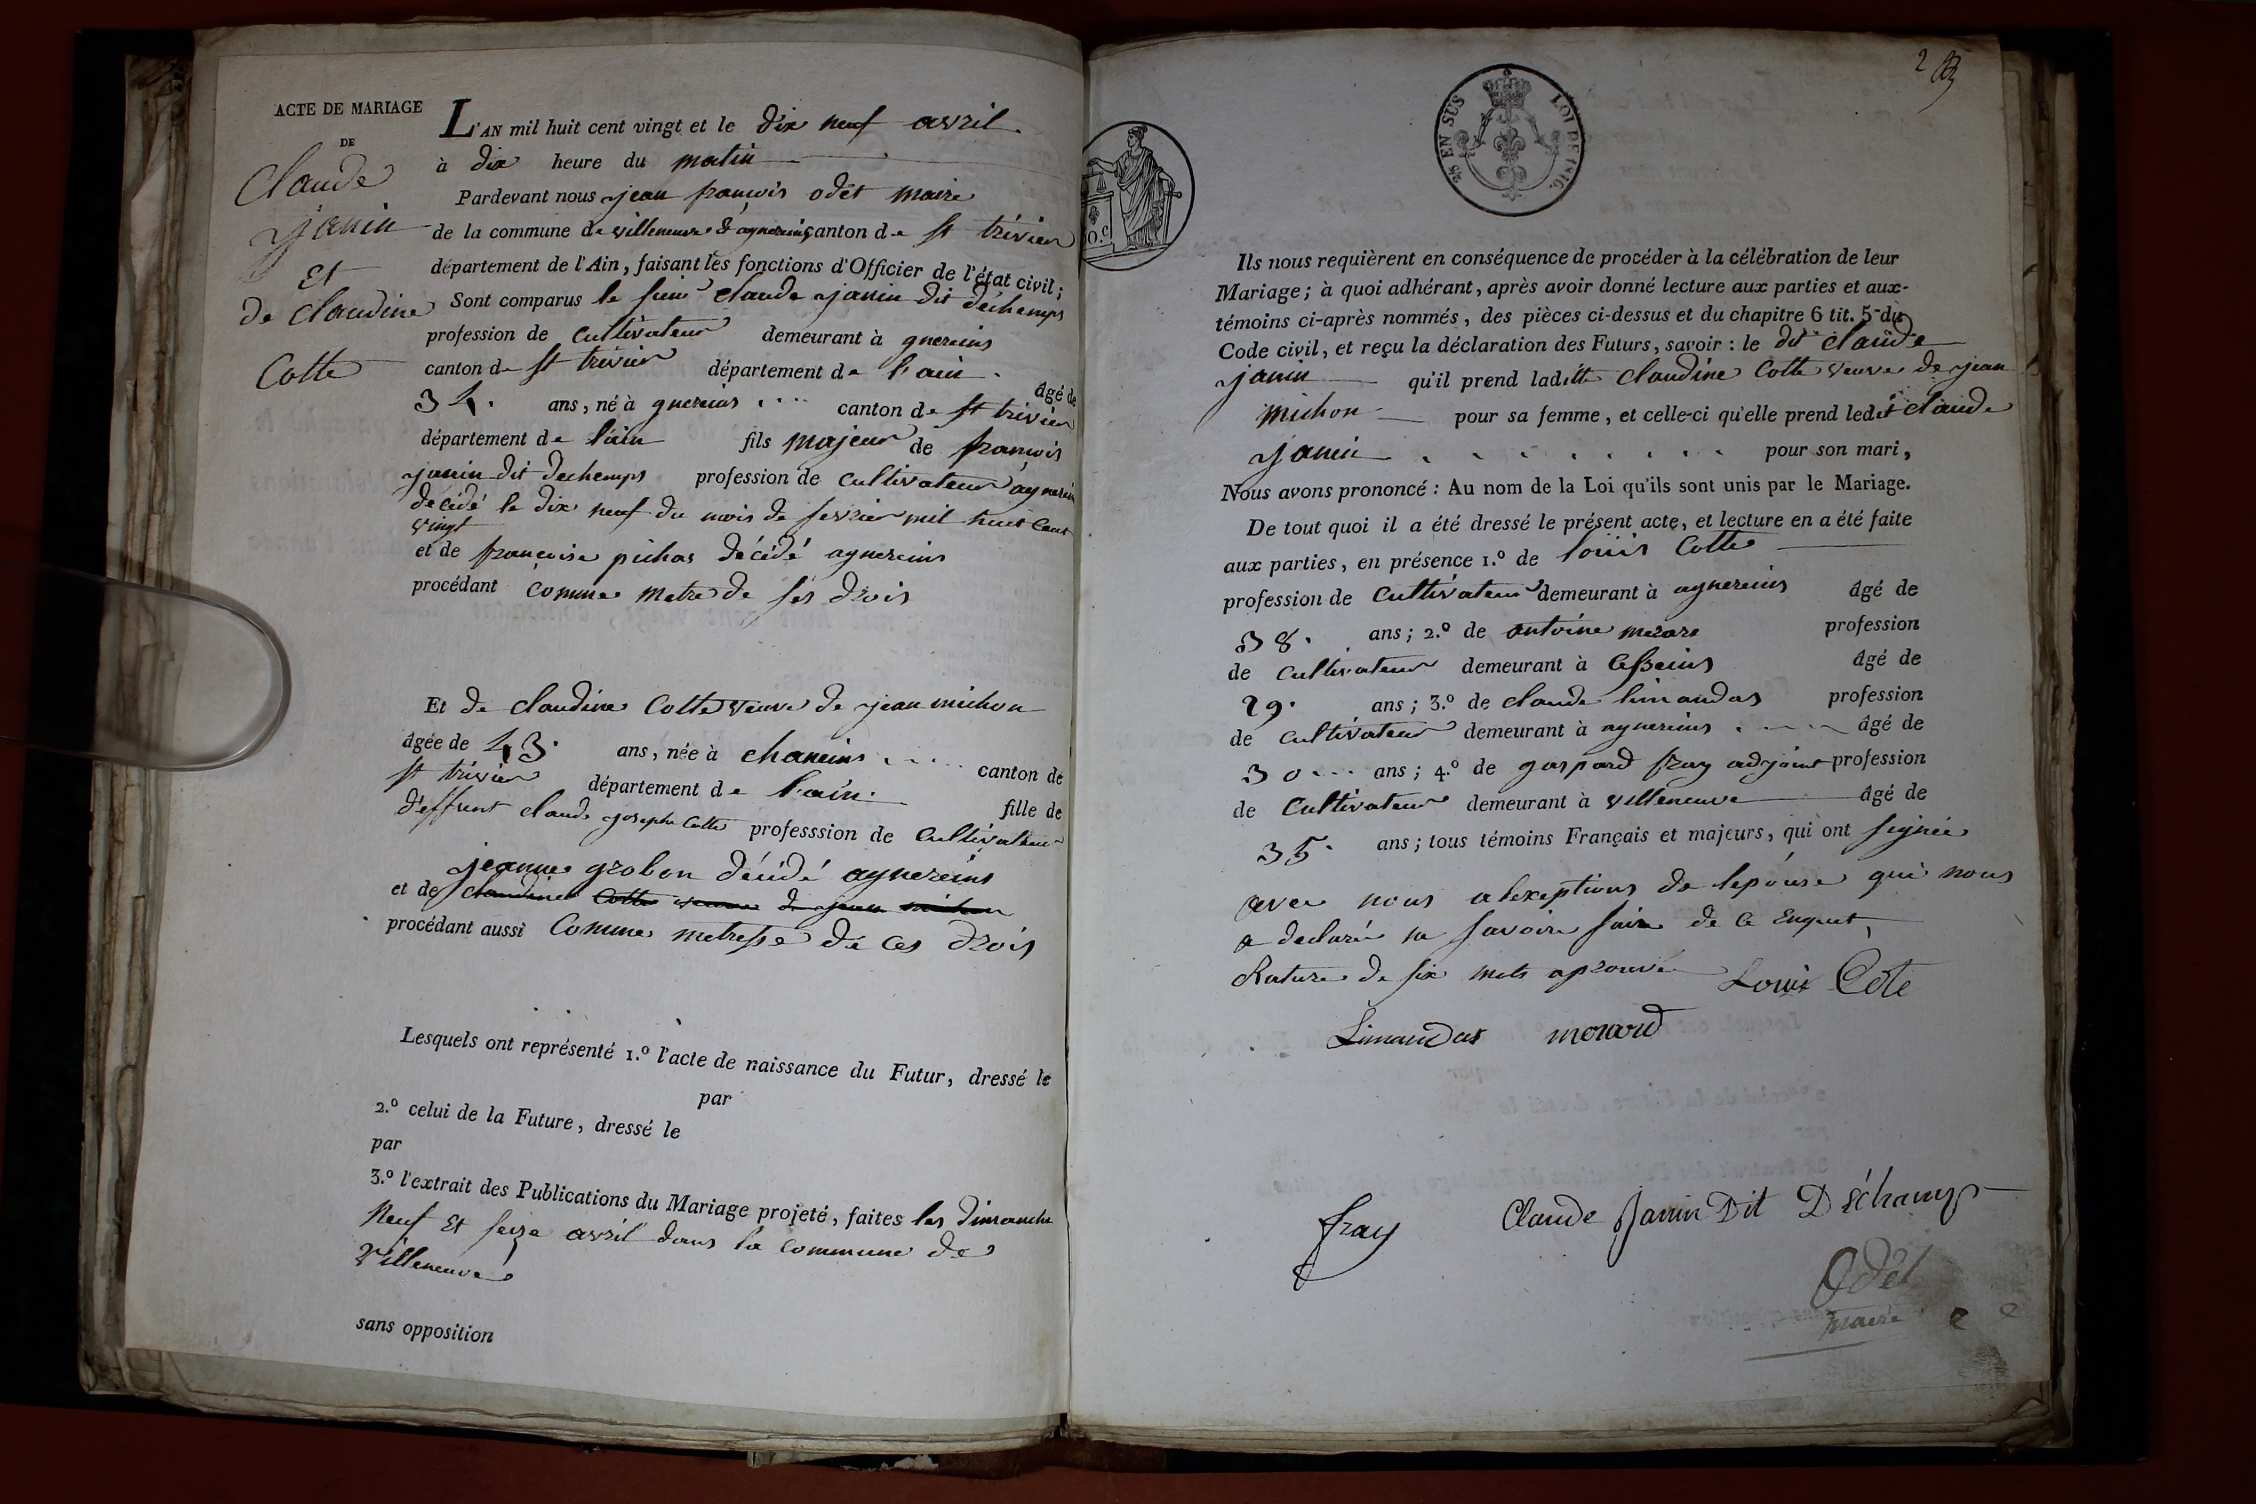 ACTE DE MARIAGE
DE
Claude
janin
Et
de claudine
Cotte
L'AN mil huit cent vingt et le dix neuf avril
à dix heure du matin
Pardevant nous jean françois odet maire
de la commune de villeneuve & agnereins canton de st trivier
département de l'Ain, faisant les fonctions d'Officier de l'état civil;
Sont comparus le sieur claude janin dit dechamps
profession de cultivateur demeurant à gnereins
canton de st trivier département de l'ain âgé de
34. ans, né à gnereins canton de st trivier
département de l'ain fils majeur de françois
janin dit dechamps profession de cultivateur agnerein
décédé le dix neuf du mois de fevrier mil huit cent
vingt
et de francoise pichas décédé agnereins
procédant comme metre de ses drois
Et de claudine Cotte veuve de jean michon
âgée de 43. ans, née à chaneins canton de
st trivier département de l'ain fille de
d'effunt claude joseph Cotte professsion de cultivateur
jeanne grobon décédé agnereins
et de claudine Cotte veuve de jean michon
procédant aussi comme metresse de ces drois
Lesquels ont représenté 1.º l'acte de naissance du Futur, dressé le
par
2.º celui de la Future, dressé le
par
3.º l'extrait des Publications du Mariage projeté, faites les dimanche
Neuf Et seize avril dans la commune de
villeneuve
sans opposition
2
25 EN SUS LOI DE 1816.
O.C
Ils nous requièrent en conséquence de procéder à la célébration de leur
Mariage; à quoi adhérant, après avoir donné lecture aux parties et aux-
témoins ci-après nommés, des pièces ci-dessus et du chapitre 6 tit. 5 du
Code civil, et reçu la déclaration des Futurs, savoir : le dit claude
janin qu'il prend laditte claudine Cotte veuve de jean
michon pour sa femme, et celle-ci qu'elle prend ledit claude
janin pour son mari,
Nous avons prononcé : Au nom de la Loi qu'ils sont unis par le Mariage.
De tout quoi il a été dressé le présent acte, et lecture en a été faite
aux parties, en présence 1.º de loüis Cotte
profession de cultivateur demeurant à agnereins âgé de
38. ans; 2.º de antoine profession
de cultivateur demeurant à Cesseins âgé de
29. ans; 3.º de claude limandas profession
de cultivateur demeurant à agnereins âgé de
30 ans; 4.º de gaspard fray adjoint profession
de cultivateur demeurant à villeneuve âgé de
35. ans; tous témoins Français et majeurs, qui ont signée
avec nous alexeptions de lepouse qui nous
a declaré ne savoir faire de ce Enquit,
Rature de six mots aprouvé Louis Cote
Limandas morard
fray Claude Janin Dit Déchamp
Odet
maire